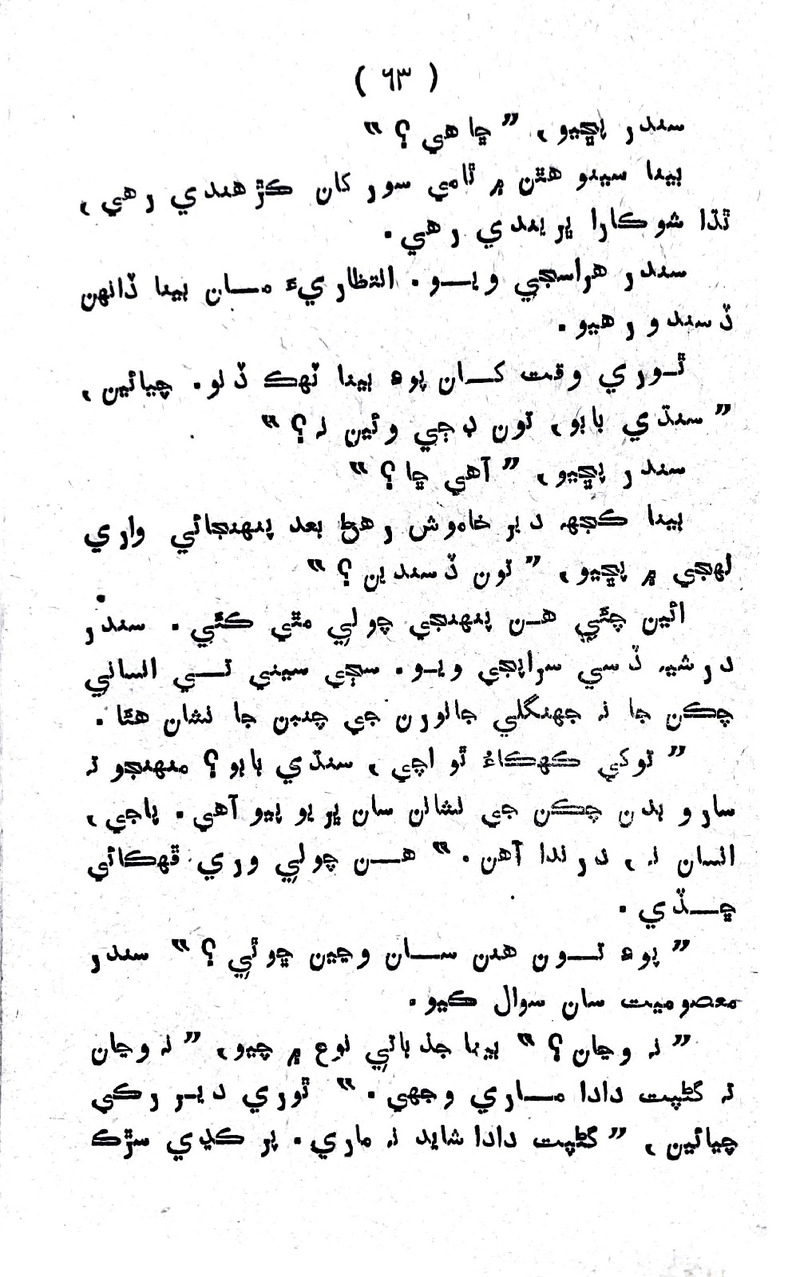 ( ٦٣ )
سندر پڇيو، ”ڇاهي؟“
بينا سينو هٿن ۾ ٿامي سور کان ڪڙهندي رهي،
ٿڌا شوڪارا ڀريندي رهي.
سندر هراسجي ويـــو. انتظاريءَ مـــان بينا ڏانهن
ڏسندو رهيو.
ٿـوري وقت کـــان پوءِ بينا ٽهڪ ڏنو. چيائين،
”سنڌي بابو، تون ڊڄي وئين نہ؟“
سندر پڇيو، ”آهي ڇا؟“
بينا ڪجهہ دير خاموش رهڻ بعد پنهنجائي واري
لهجي ۾ پڇيو، ”تون ڏسندين؟“
ائين چئي هـن پنهنجي چولي مٿي ڪئي. سندر
درشيہ ڏسي سراپجي ويـو. سڄي سيني تـــي انساني
چڪن جا نہ جهنگلي جانورن جي چنبن جا نشان هئا.
”توکي کهڪاءُ ٿو اچي، سنڌي بابو؟ منهنجو تہ
سارو بدن چڪن جي نشانن سان ڀريو پيو آهي. پاجي،
انسان نہ، درندا آهن.“ هـــن چولي وري ڦهڪائي
ڇـــڏي.
”پوءِ تـــون هنن ســـان وڃين ڇو ٿي؟“ سندر
معصوميت سان سوال ڪيو.
”نہ وڃان؟“ بينا جذباتي نوع ۾ چيو، ”نہ وڃان
تہ گڻپت دادا مـــاري وجهي.“ ٿوري ديـر رکي
چيائين، ”گڻپت دادا شايد نہ ماري. پر ڪڏي سڙڪ